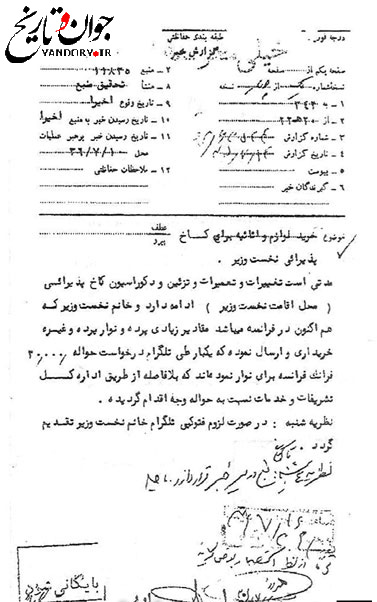 جوان و تاریخ
YANDORY.IR
درجه فور
طبقه بندی حفاظتی
خیلی
گزارش خبر
صفحه یکم از صفحه
نسخه شماره از نسخه
۱ ـ به ۳۴۳
۲ ـ از ۲۲ ه ۲۰
۳ ـ شماره گزارش
۴ ـ تاریخ گزارش
۵ ـ پیوست
۶ ـ گیرندگان خبر
۷ ـ منبع ۱۱۸۳۵
۸ ـ منشأ تحقیق منبع
۹ ـ تاریخ وقوع اخیرا
۱۰ ـ تاریخ رسیدن خبر به منبع اخیرا
۱۱ ـ تاریخ رسیدن خبر برهبر عملیات
محل ۳۶/۷/۱۰
۱۲ ـ ملاحظات حفاظتی
موضوع خرید لوازم و اثاثیه برای کاخ
عطف
پیرو
پذیرائی نخست وزیر.
مدتی است تغییرات و تعمیرات و تزئین و دکوراسیون کاخ پذیرائی
( محل اقامت نخست وزیر ) ادامه دارد و خانم نخست وزیر که
هم اکنون در فرانسه میباشد مقادیر زیادی پرده و نوار پرده و غیره
خریداری و ارسال نموده که یکبار طی تلگرام درخواست حواله ۲۰,۰۰۰
فرانک فرانسه برای نوار نموده اند که بلافاصله از طریق اداره کل
تشریفات و خدمات نسبت به حواله وجه اقدام گردیده.
نظریه شنبه : در صورت لزوم فتوکپی تلگرام خانم نخست وزیر تقدیم
گردد.
نظریه
بایگانی شود